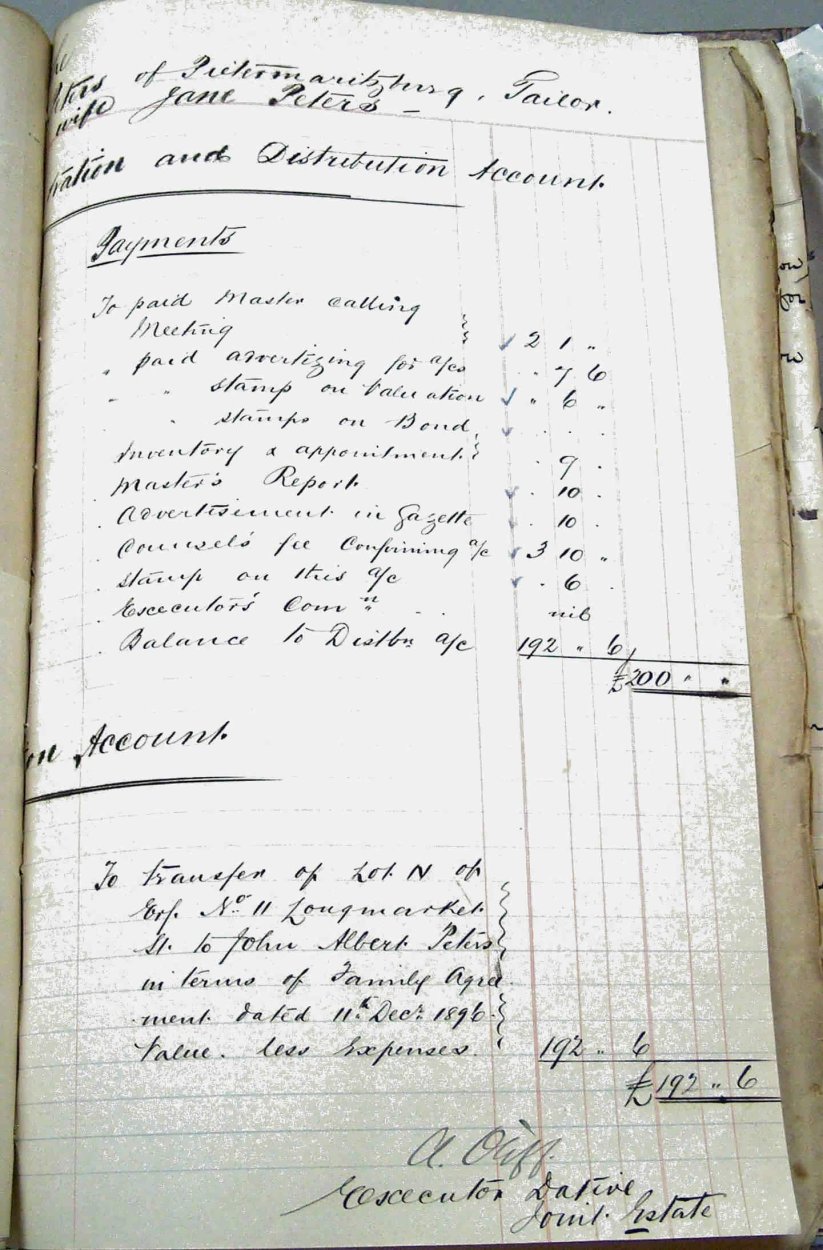 of Pietermaritzburg, Tailor.
wife Jane Peters –
and Distribution Account.
Payments
To paid Master calling
Meeting } ✓ 2 1 "
" paid advertizing for a/cs " 7 6
" " stamp on Valuation ✓ " 6 "
" stamps on Bond, ✓ . . .
Inventory & appointment. } . 9 .
. Master's Report. ✓ . 10 .
. Advertisement in Gazette ✓ . 10 .
. Counsel's fee Confirming a/c ✓ 3 10 "
. Stamp on this a/c ✓ . 6 .
. Executor's Com n . . nil
. Balance to Distbn a/c 192 " 6
£200 " "
on Account.
To transfer of Lot N of
Erf. No. 11 Longmarket
St. to John Albert Peters
in terms of Family Agree
ment dated 11th Decr. 1896.
Value less Expenses. 192 " 6
£192 " 6
Executor Dative
Joint Estate